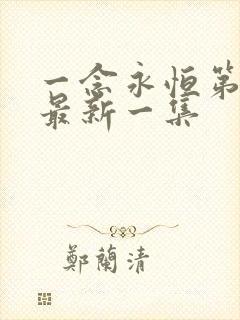 一念永恒第
最新一集
鄭蘭清